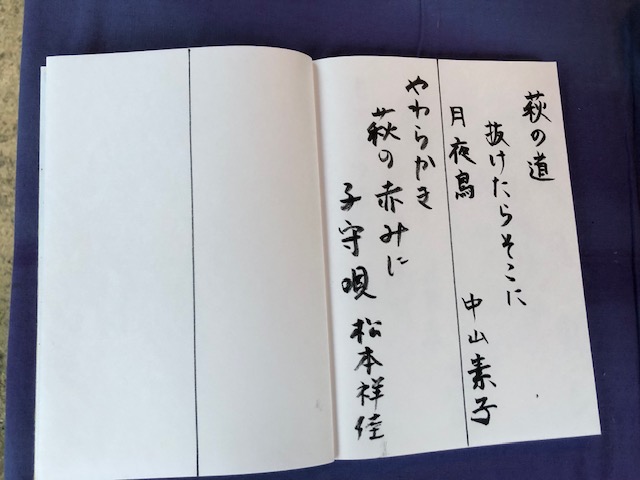 萩の道
抜けたらそこに
月夜鳥
中山素子
やわらかき
萩の赤みに
子守唄
松本祥佳